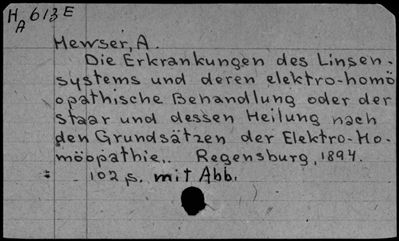 HA 613 E
Hewser, A.
Die Erkrankungen des Linsen-
systems und deren elektro-homö
opathische Behandlung oder der
staar und dessen Heilung nach
den Grundsätzen der Elektro-Ho-
möopathie.. Regensburg, 1894.
102 s. mit Abb.